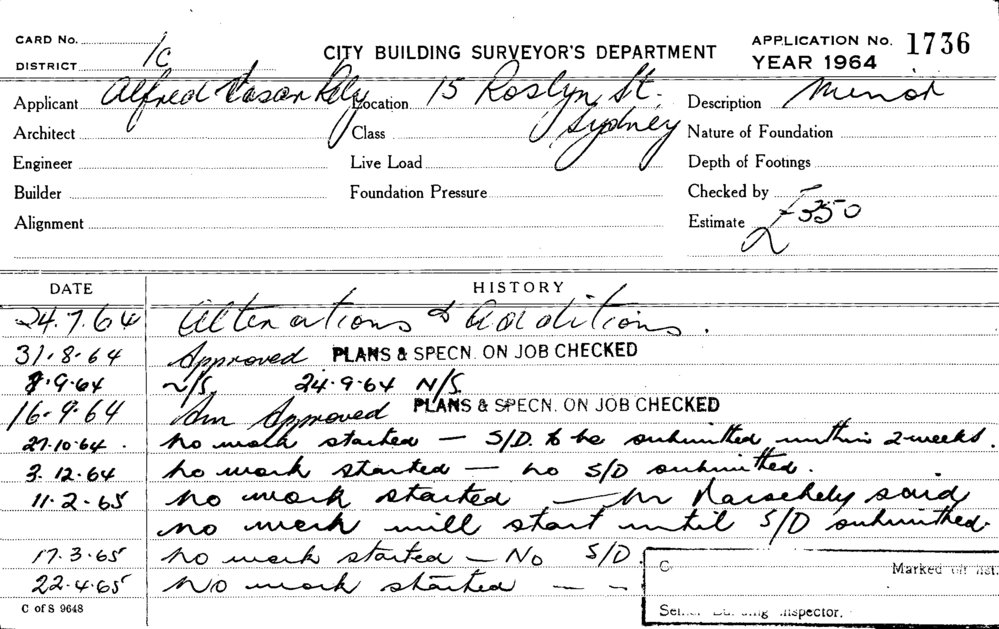 CARD No.
DISTRICT 1c
CITY BUILDING SURVEYOR'S DEPARTMENT
APPLICATION No. 1736
YEAR 1964
Applicant Alfred Location 15 Roslyn St. Description Minor
Architect Class Sydney Nature of Foundation
Engineer Live Load Depth of Footings
Builder Foundation Pressure Checked by
Alignment Estimate £350
DATE HISTORY
24.7.64 Alterations & Additions.
31.8.64 Approved PLANS & SPECN. ON JOB CHECKED
8.9.64 N/S. 24.9.64 N/S.
16.9.64 Am Approved PLANS & SPECN. ON JOB CHECKED
27.10.64. No work started — S/D. to be submitted within 2 weeks.
3.12.64 No work started — no S/D submitted.
11.2.65 No work started — Mr said
no work will start until S/D submitted.
17.3.65 No work started — No S/D.
22.4.65 No work started — —
C Marked off list.
C of S 9648
Inspector.